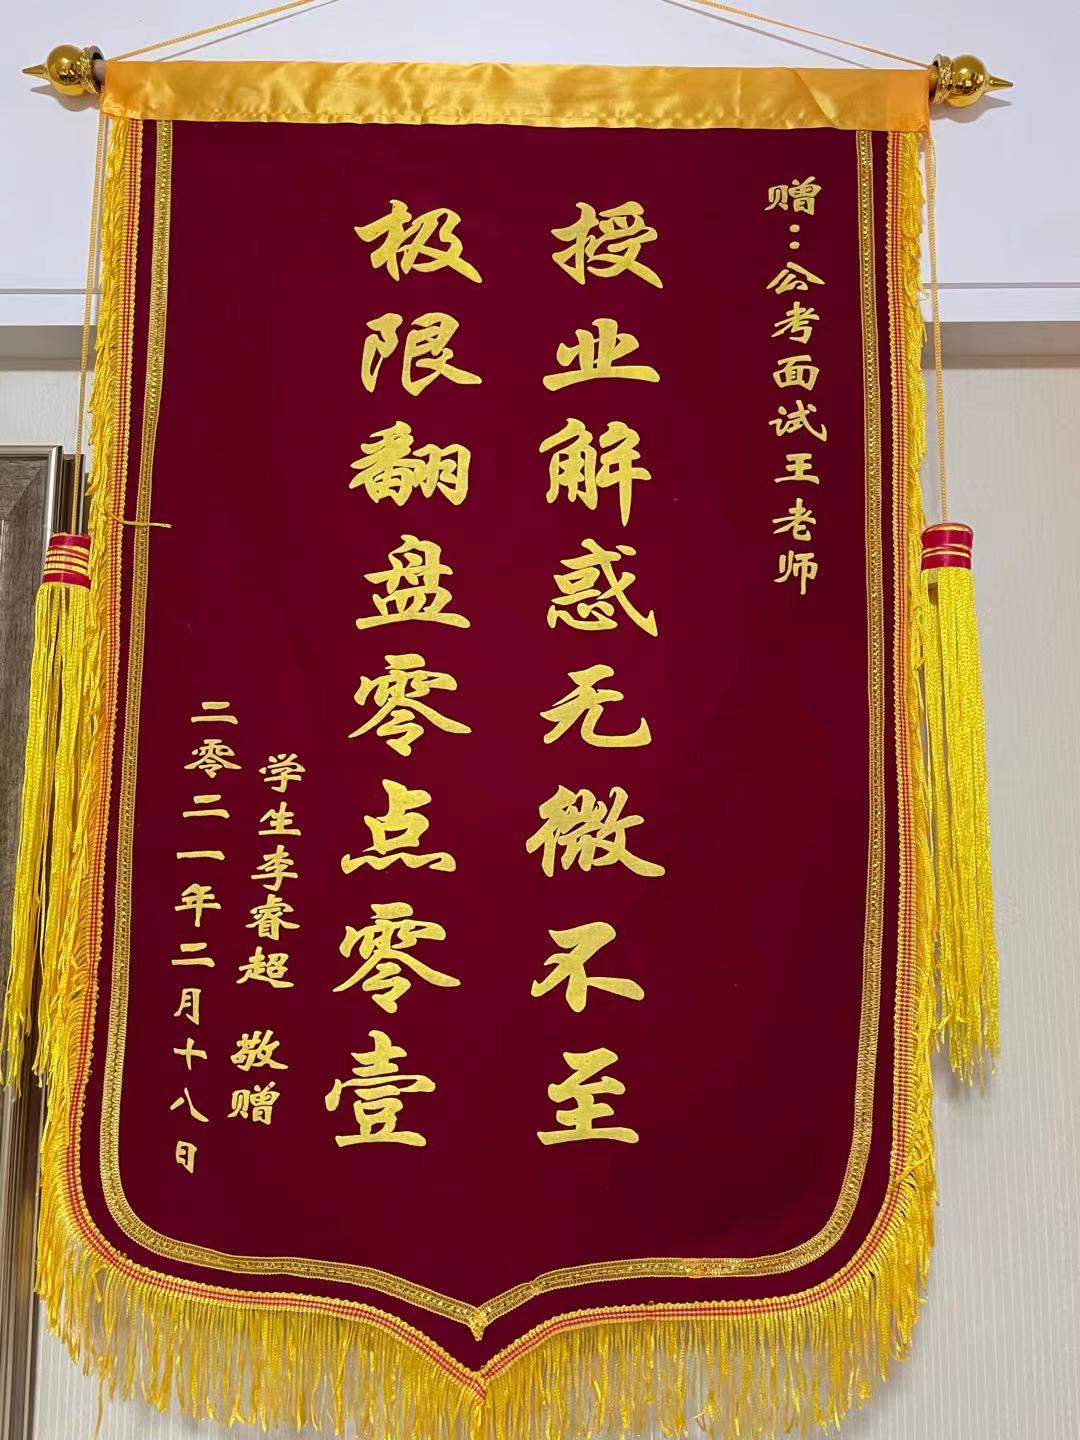 赠：公考面试王老师
授业解惑无微不至
极限翻盘零点零壹
学生李睿超 敬赠
二零二一年二月十八日